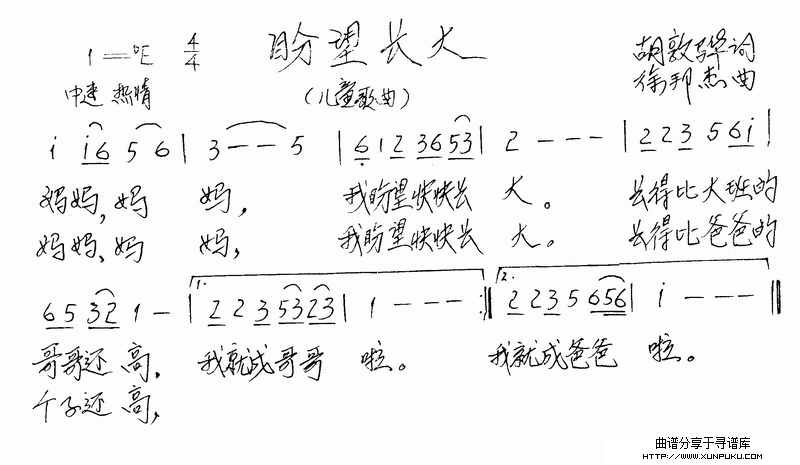 盼望长大
1=♭E 4/4
(儿童歌曲)
胡敦骅词
徐邦杰曲
中速 热情
i i6 5 6 | 3 - - 5 | 6 1 2 36 53 | 2 - - - | 2 2 3 5 6i |
妈妈,妈 妈, 我盼望快快长 大。 长得比大班的
妈妈、妈 妈, 我盼望快快长 大。 长得比爸爸的
6 5 32 1 - | 1. 2 2 3 53 23 | 1 - - - :|| 2. 2 2 3 5 656 | i - - - ||
哥哥还 高, 我就成哥哥 啦。 我就成爸爸 啦。
个子还 高,
曲谱分享于寻谱库
HTTP://WWW.XUNPUKU.COM